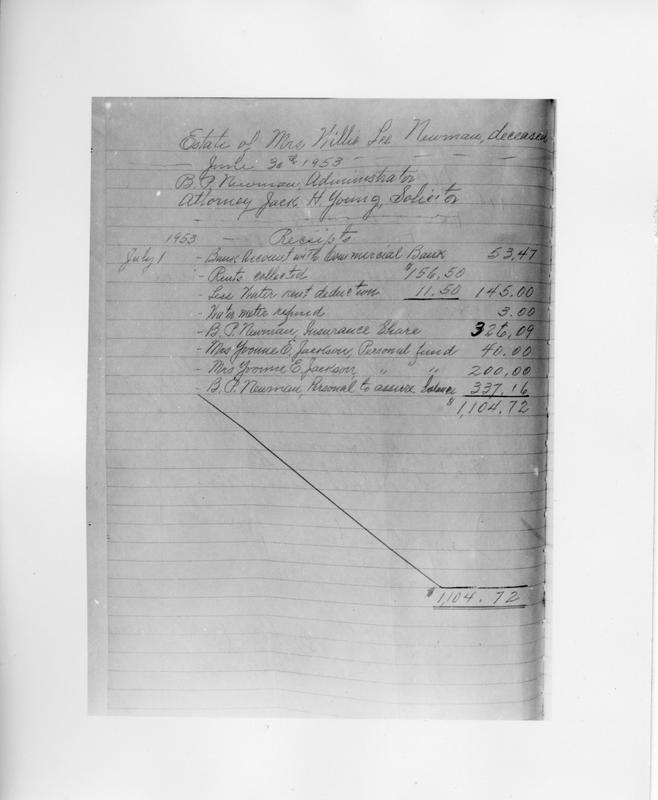 Estate of Mrs Willie Lee Newman, deceased
June 30th 1953
B. P. Newman, Administrator
Attorney Jack H Young, Solicitor
1953 - Receipts
July 1 - Bank Account with Commercial Bank 53,47
- Rents collected $156,50
- Less Water rent deduction 11.50 145.00
- Water meter refund 3.00
- B. P. Newman, Insurance Share 326,09
- Mrs Yvonne E, Jackson, Personal fund 40.00
- Mrs Yvonne E, Jackson, " " 200,00
- B. P. Newman, Personal to assure balance 337.16
$1,104.72
$1,104.72